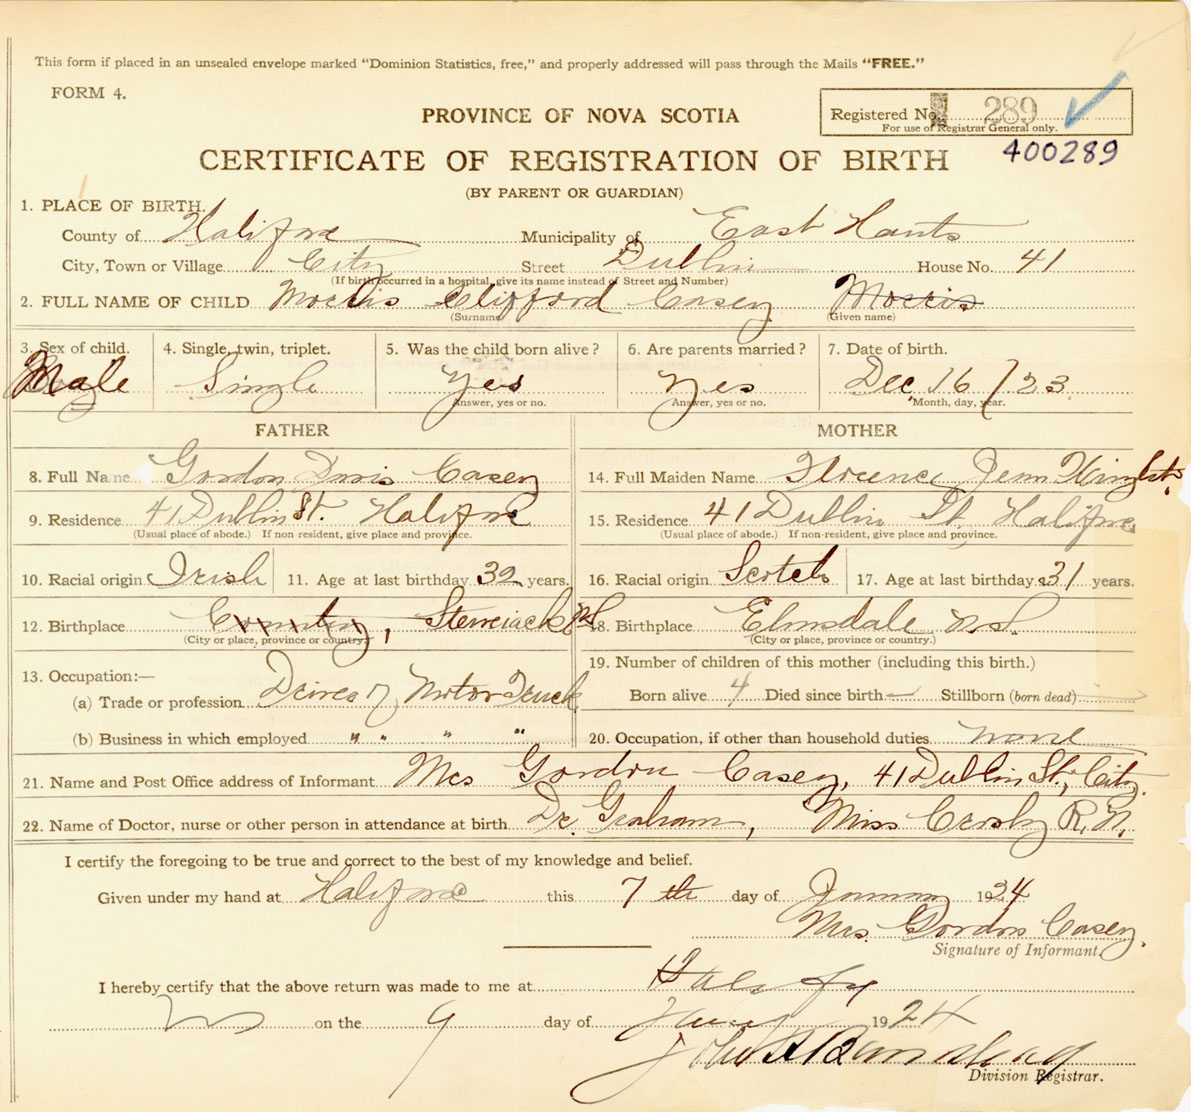 This form if placed in an unsealed envelope marked "Dominion Statistics, free," and properly addressed will pass through the Mails "FREE."
FORM 4.
PROVINCE OF NOVA SCOTIA
Registered No. 289
For use of Registrar General only.
400289
CERTIFICATE OF REGISTRATION OF BIRTH
(BY PARENT OR GUARDIAN)
1. PLACE OF BIRTH.
County of Halifax Municipality of East Hants
City, Town or Village City Street Dublin House No. 41
(If birth occurred in a hospital, give its name instead of Street and Number)
2. FULL NAME OF CHILD Morris Clifford Casey Morris
(Surname) (Given name)
3. Sex of child. 4. Single, twin, triplet. 5. Was the child born alive? 6. Are parents married? 7. Date of birth.
Male Single Yes Yes Dec. 16 / 23
Answer, yes or no. Answer, yes or no. Month, day, year.
FATHER MOTHER
8. Full Name Gordon Casey 14. Full Maiden Name Florence
9. Residence 41 Dublin St. Halifax 15. Residence 41 Dublin St. Halifax
(Usual place of abode.) If non-resident, give place and province. (Usual place of abode.) If non-resident, give place and province.
10. Racial origin Irish 11. Age at last birthday 32 years. 16. Racial origin Scotch 17. Age at last birthday 31 years.
12. Birthplace Country, NS 18. Birthplace Elmsdale N.S.
(City or place, province or country.) (City or place, province or country.)
13. Occupation:— 19. Number of children of this mother (including this birth.)
(a) Trade or profession Driver of Motor Truck Born alive 4 Died since birth — Stillborn (born dead) —
(b) Business in which employed " " " " 20. Occupation, if other than household duties none
21. Name and Post Office address of Informant Mrs Gordon Casey, 41 Dublin St., City.
22. Name of Doctor, nurse or other person in attendance at birth Dr. Graham, Miss Crosby R.N.
I certify the foregoing to be true and correct to the best of my knowledge and belief.
Given under my hand at Halifax this 7th day of January 1924
Mrs. Gordon Casey.
Signature of Informant.
I hereby certify that the above return was made to me at Halifax
NS on the 9 day of Jany 1924
John A
Division Registrar.